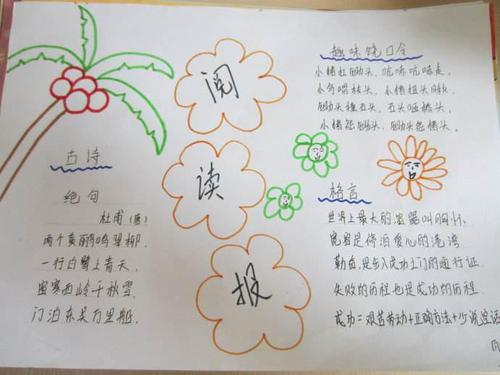 阅
读
报
古诗
绝句
杜甫(唐)
两个黄鹂鸣翠柳
一行白鹭上青天
窗含西岭千秋雪
门泊东吴万里船
趣味绕口令
小猪扛锄头,吭哧吭哧走,
小鸟唱枝头,小猪扭头瞅,
锄头撞石头,石头砸猪头,
小猪怨锄头,锄头怨猪头。
格言
世界上最大的容器叫胸怀
宽容是停泊爱心的港湾
勤奋是步入成功之门的通行证
失败的历程也是成功的历程
成功=艰苦劳动+正确方法+少说空话